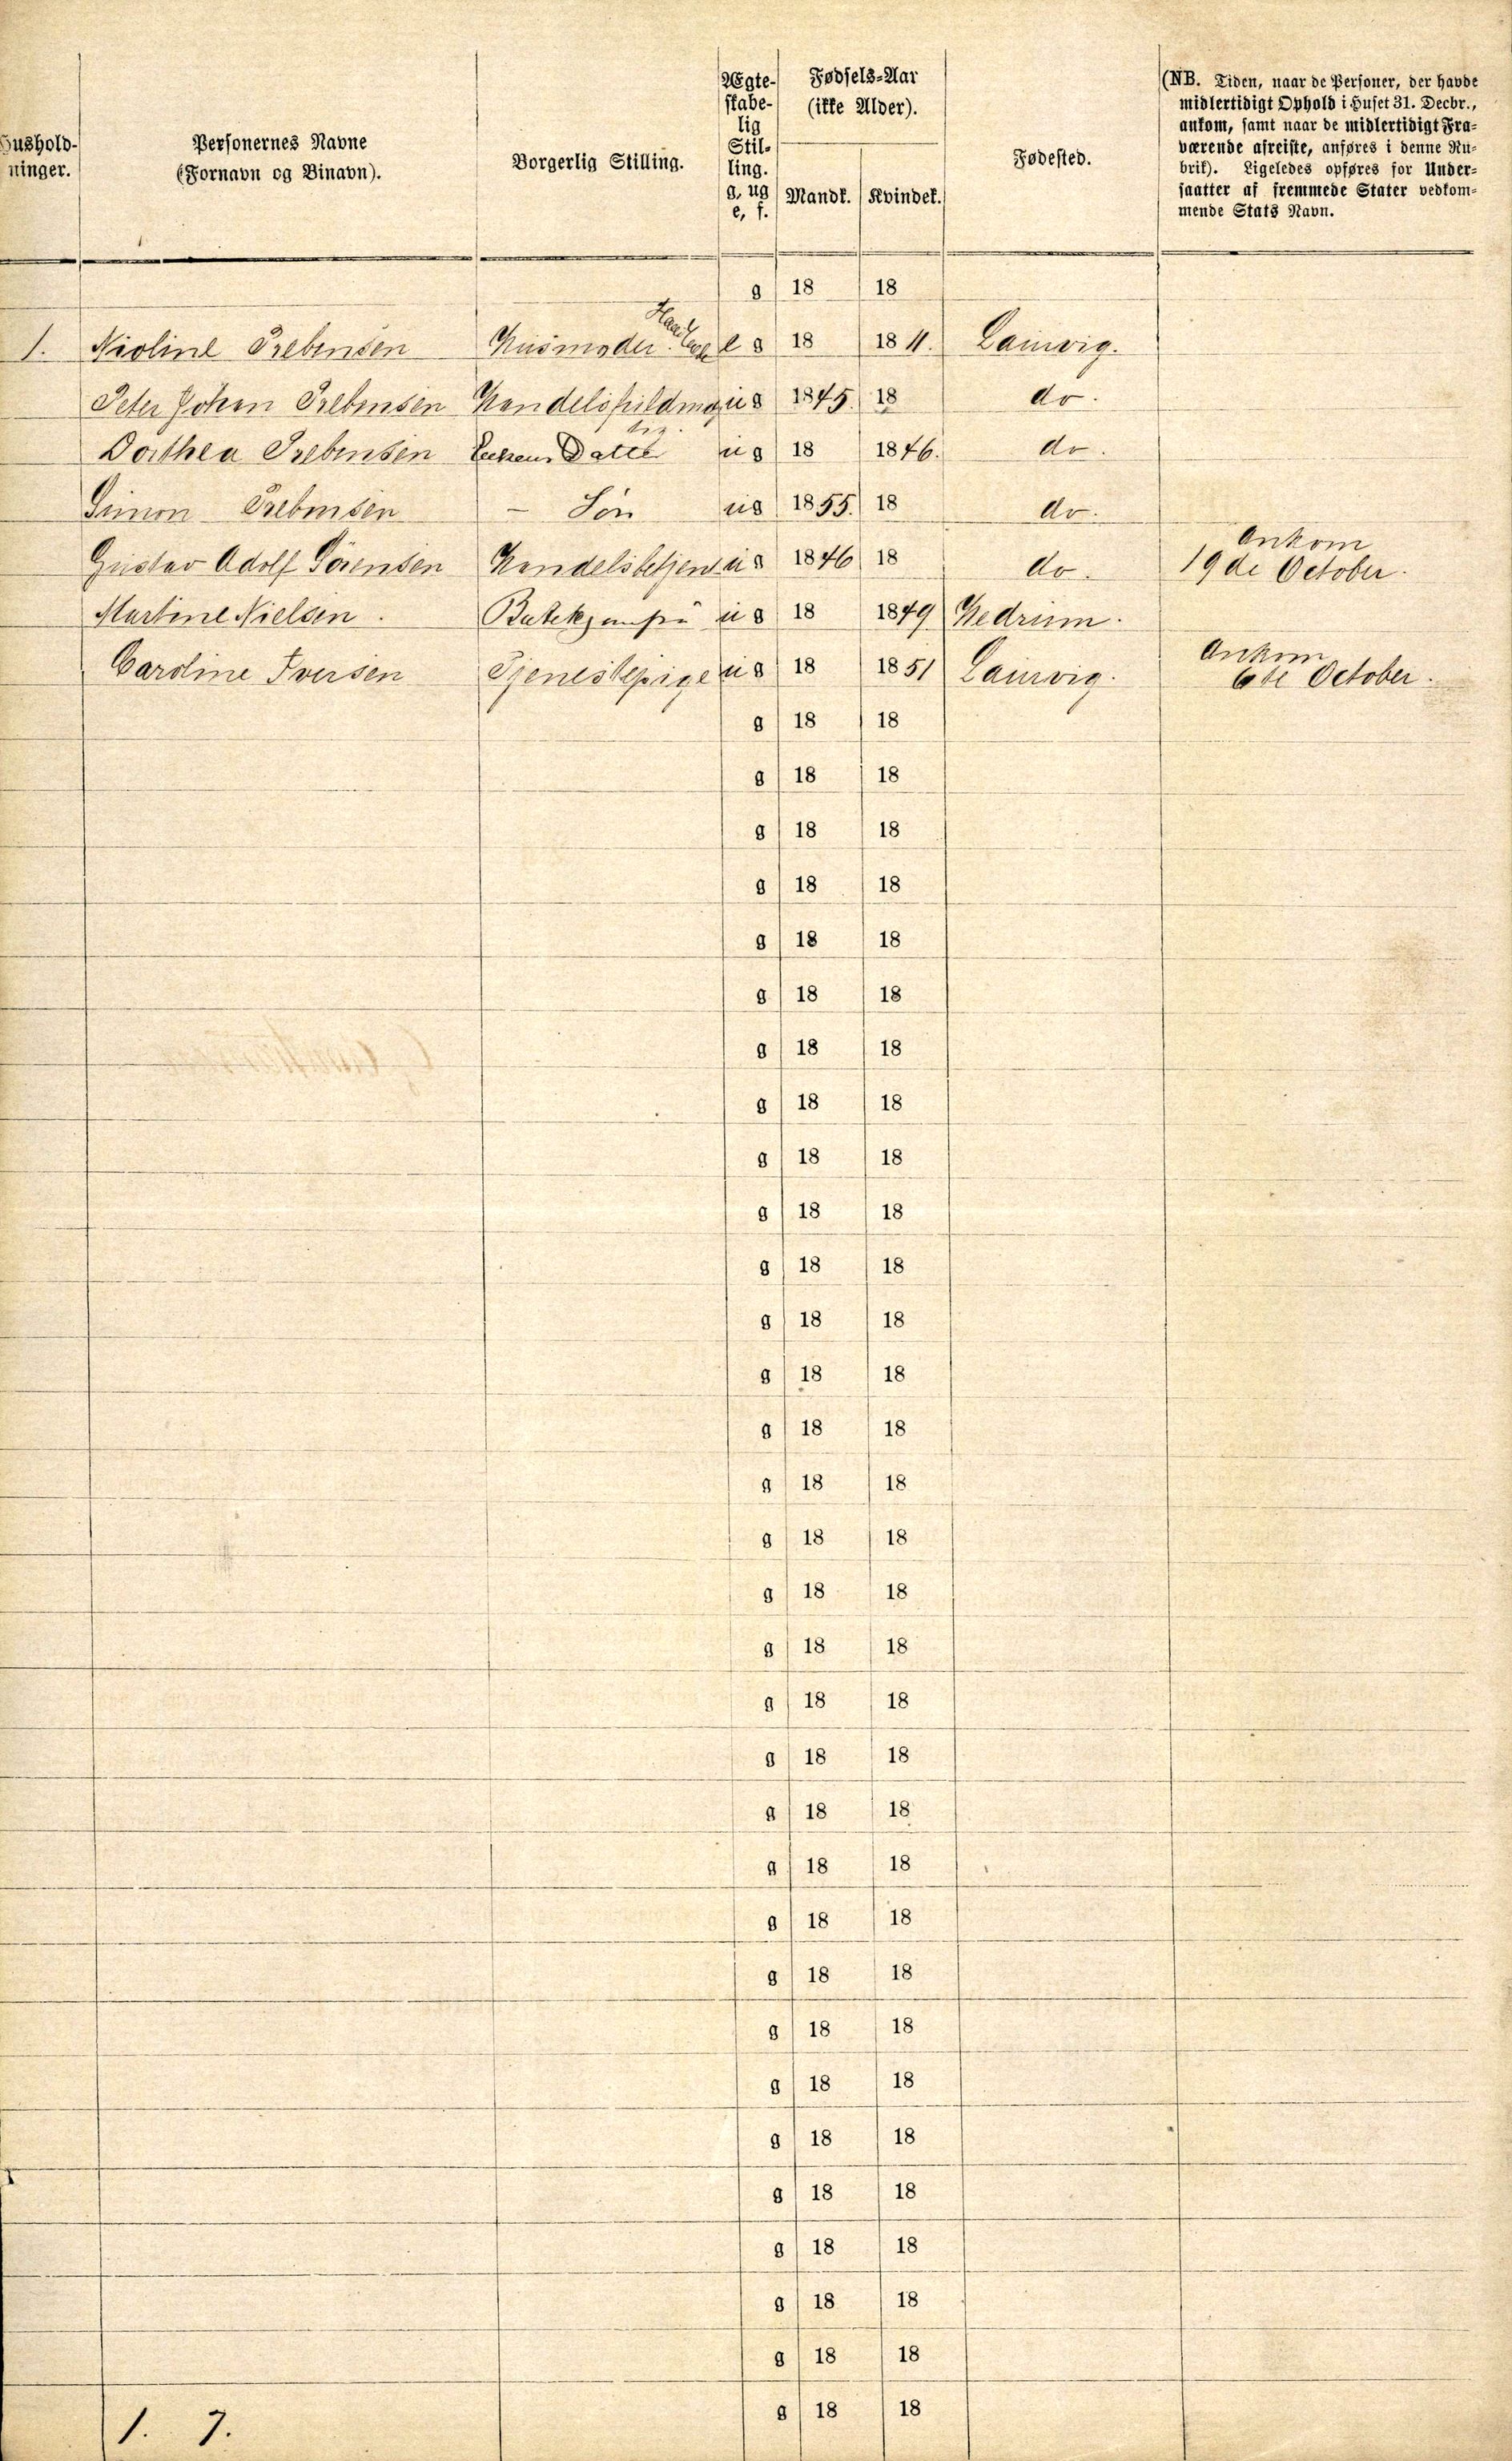 Hushold-
ninger.
Personernes Navne
(Fornavn og Binavn).
Borgerlig Stilling.
Ægte-
skabe-
lig
Stil-
ling.
g, ug
e, f.
Fødsels-Aar
(ikke Alder).
Mandk. Kvindek.
Fødested.
(NB. Tiden, naar de Personer, der havde
midlertidigt Ophold i Huset 31. Decbr.,
ankom, samt naar de midlertidigt Fra-
værende afreiste, anføres i denne Ru-
brik). Ligeledes opføres for Under-
saatter af fremmede Stater vedkom-
mende Stats Navn.
g 18 18
1. Nicoline Prebensen Husmoder. e g 18 18 11. Laurvig.
Peter Johan Prebensen ug 1845. 18 do.
Dorthea Prebensen Datter ug 18 1846. do.
Simon Prebensen – Sön ug 1855. 18 do.
Ankom
Gustav Adolf Sörensen Handelsbetjent ug 1846 18 do. 19de October.
Martine Nielsen. Butikjomfru ug 18 1849 Hedrum.
Ankom
Caroline Iversen Tjenestepige ug 18 1851 Laurvig. 6te October.
g 18 18
g 18 18
g 18 18
g 18 18
g 18 18
g 18 18
g 18 18
g 18 18
g 18 18
g 18 18
g 18 18
g 18 18
g 18 18
g 18 18
g 18 18
g 18 18
g 18 18
g 18 18
g 18 18
g 18 18
g 18 18
g 18 18
g 18 18
g 18 18
g 18 18
g 18 18
g 18 18
g 18 18
g 18 18
g 18 18
g 18 18
g 18 18
1. 7.